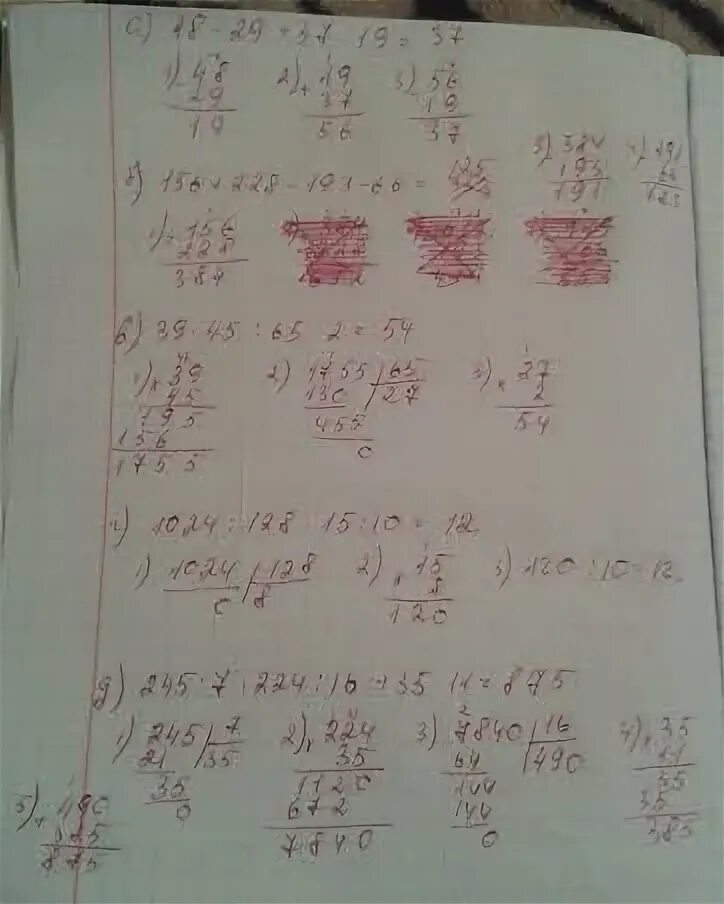 а) 48 - 29 + 37 - 19 = 37
1) - 48 29 19
2) + 19 37 56
3) - 56 19 37
б) 156 + 228 - 193 - 66 = 125
1) + 156 228 384
3) - 384 193 191
4) - 191 66 125
в) 39 · 45 : 65 · 2 = 54
1) × 39 45 195 156 1755
2) 1755 | 65 130 27 455 0
3) × 27 2 54
г) 1024 : 128 · 15 : 10 = 12
1) 1024 | 128 0 8
2) × 15 8 120
3) 120 : 10 = 12
д) 245 : 7 · 224 : 16 + 35 · 11 = 875
1) 245 | 7 21 35 35 0
2) × 224 35 1120 672 7840
3) 7840 | 16 64 490 144 144 0
4) × 35 11 35 35 385
5) + 490 385 875